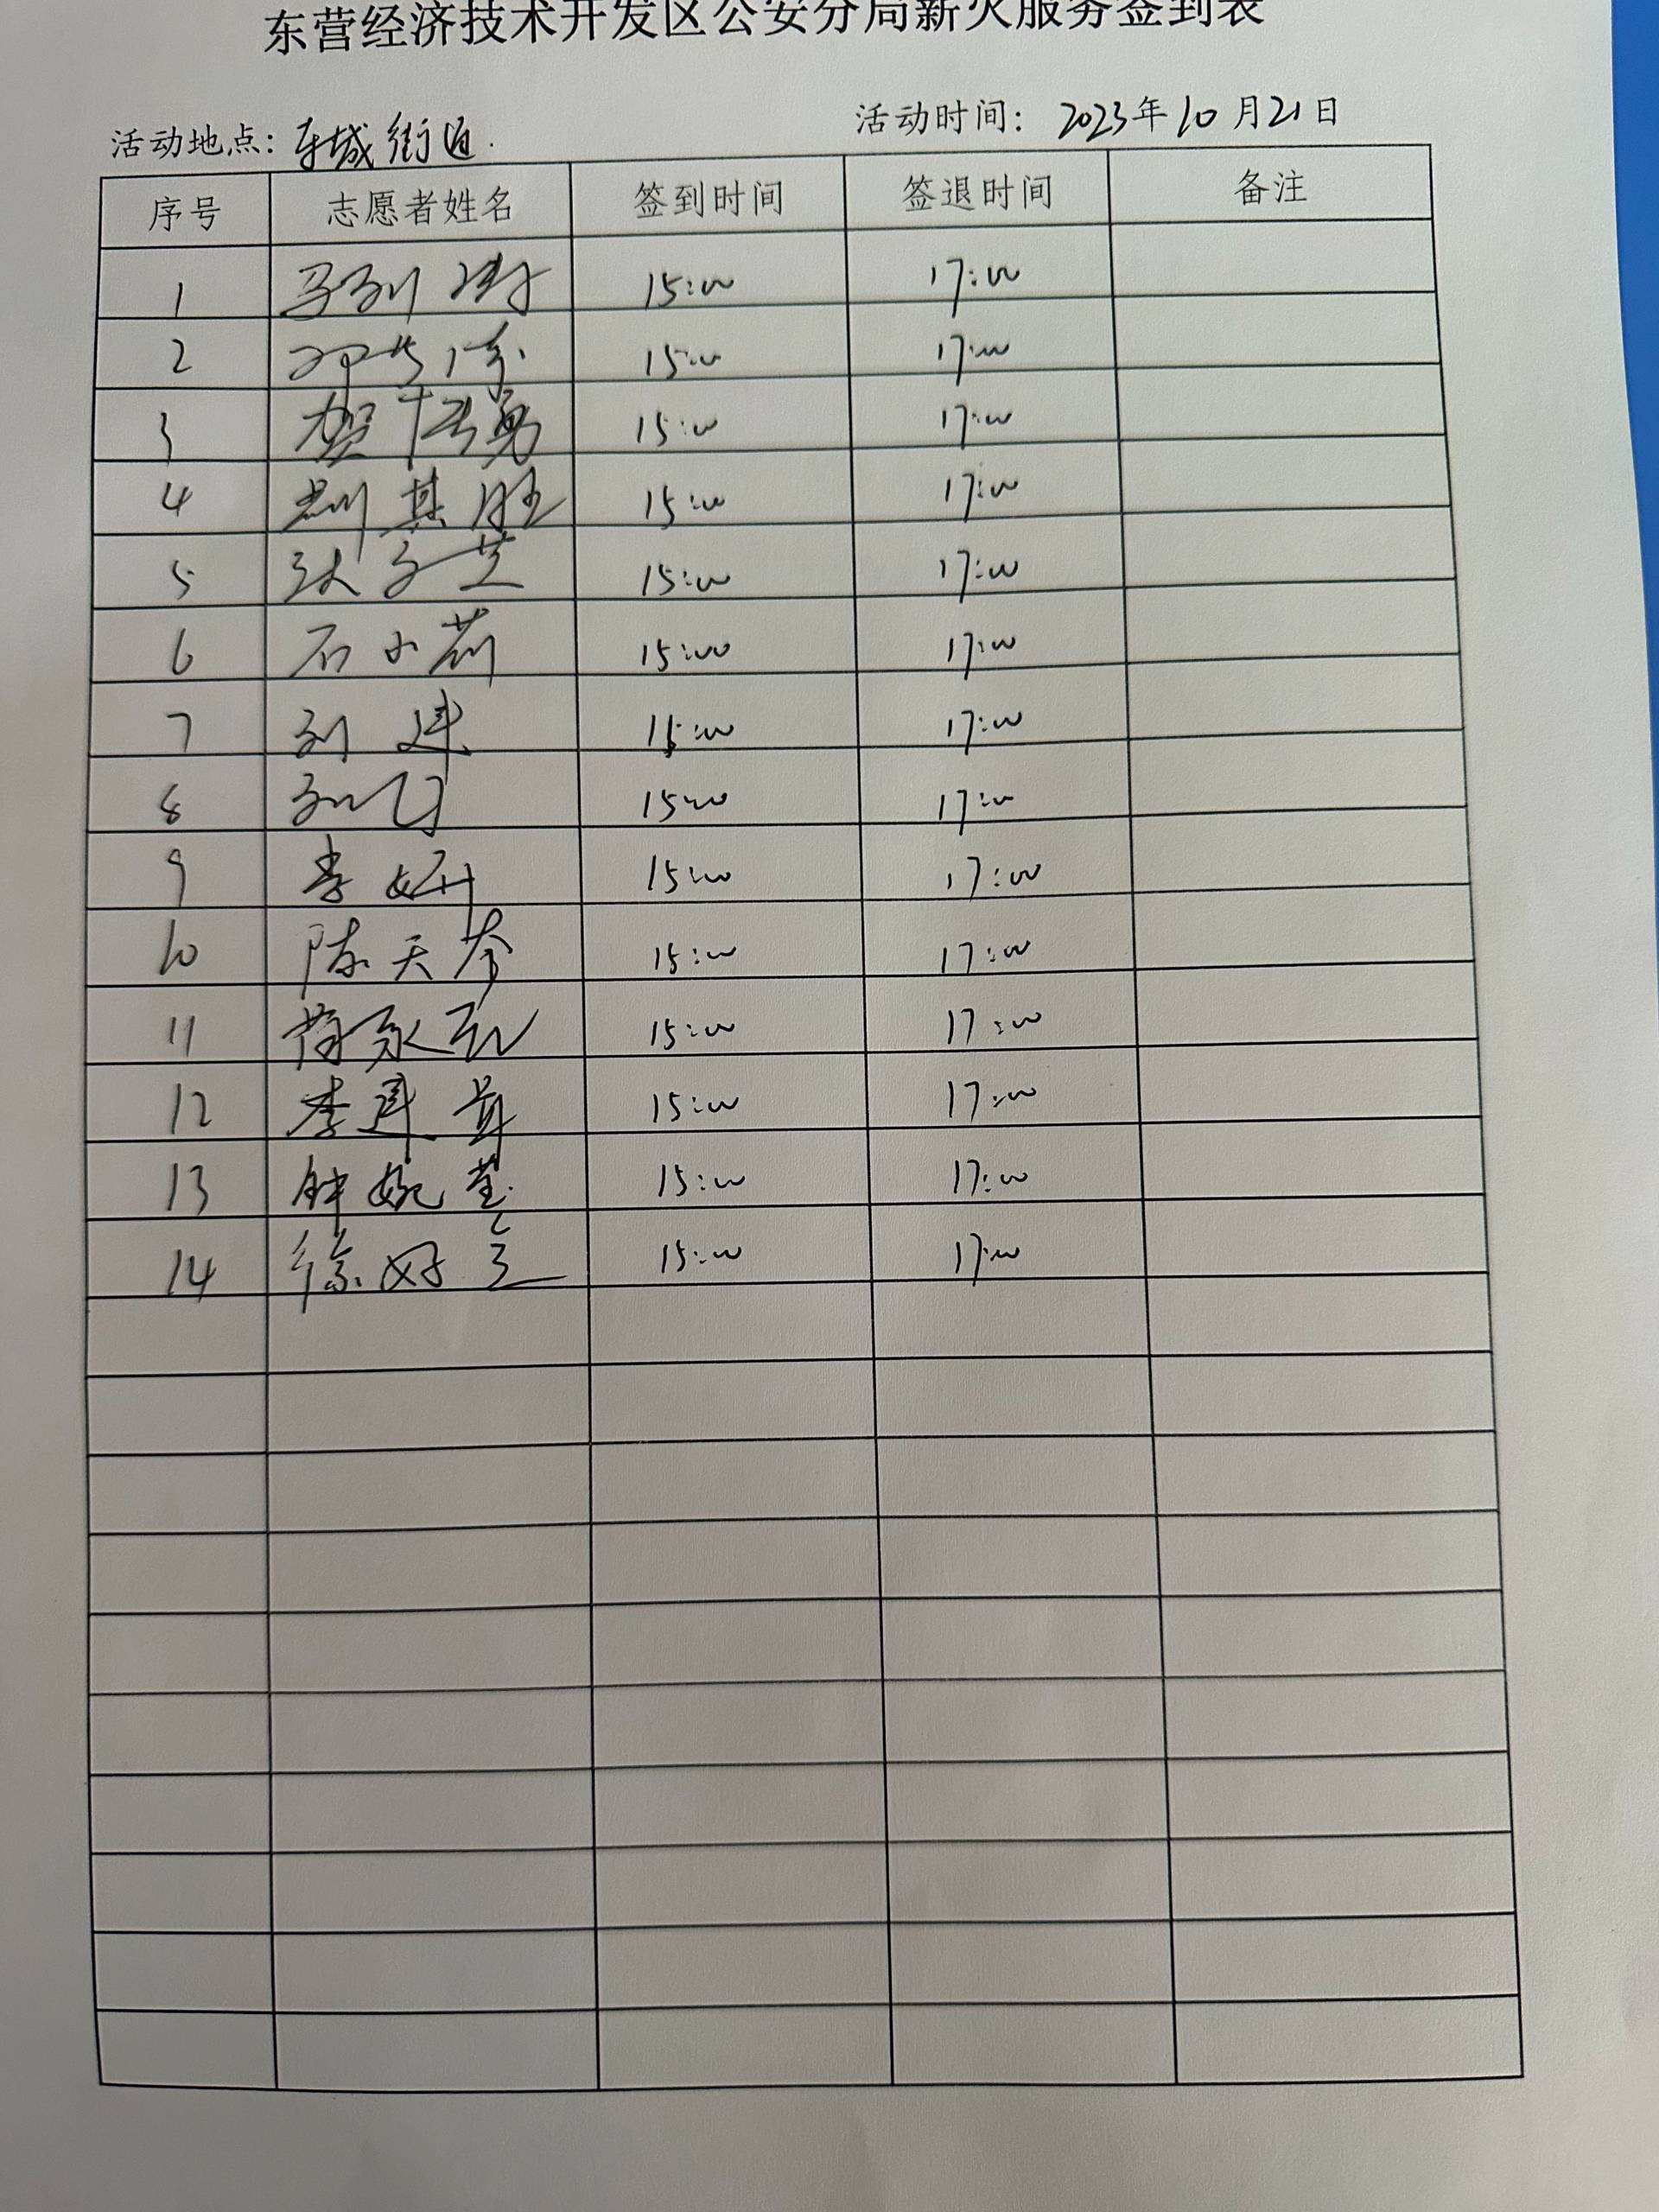 东营经济技术开发区公安分局薪火服务签到表
活动地点：东城街道 活动时间：2023年10月21日
序号 志愿者姓名 签到时间 签退时间 备注
1 15:00 17:00
2 15:00 17:00
3 贺 勇 15:00 17:00
4 荆其胜 15:00 17:00
5 张子芝 15:00 17:00
6 石小莉 15:00 17:00
7 刘建 15:00 17:00
8 15:00 17:00
9 李妍 15:00 17:00
10 陈天芩 15:00 17:00
11 15:00 17:00
12 李建 15:00 17:00
13 钟婉莹 15:00 17:00
14 徐好 15:00 17:00